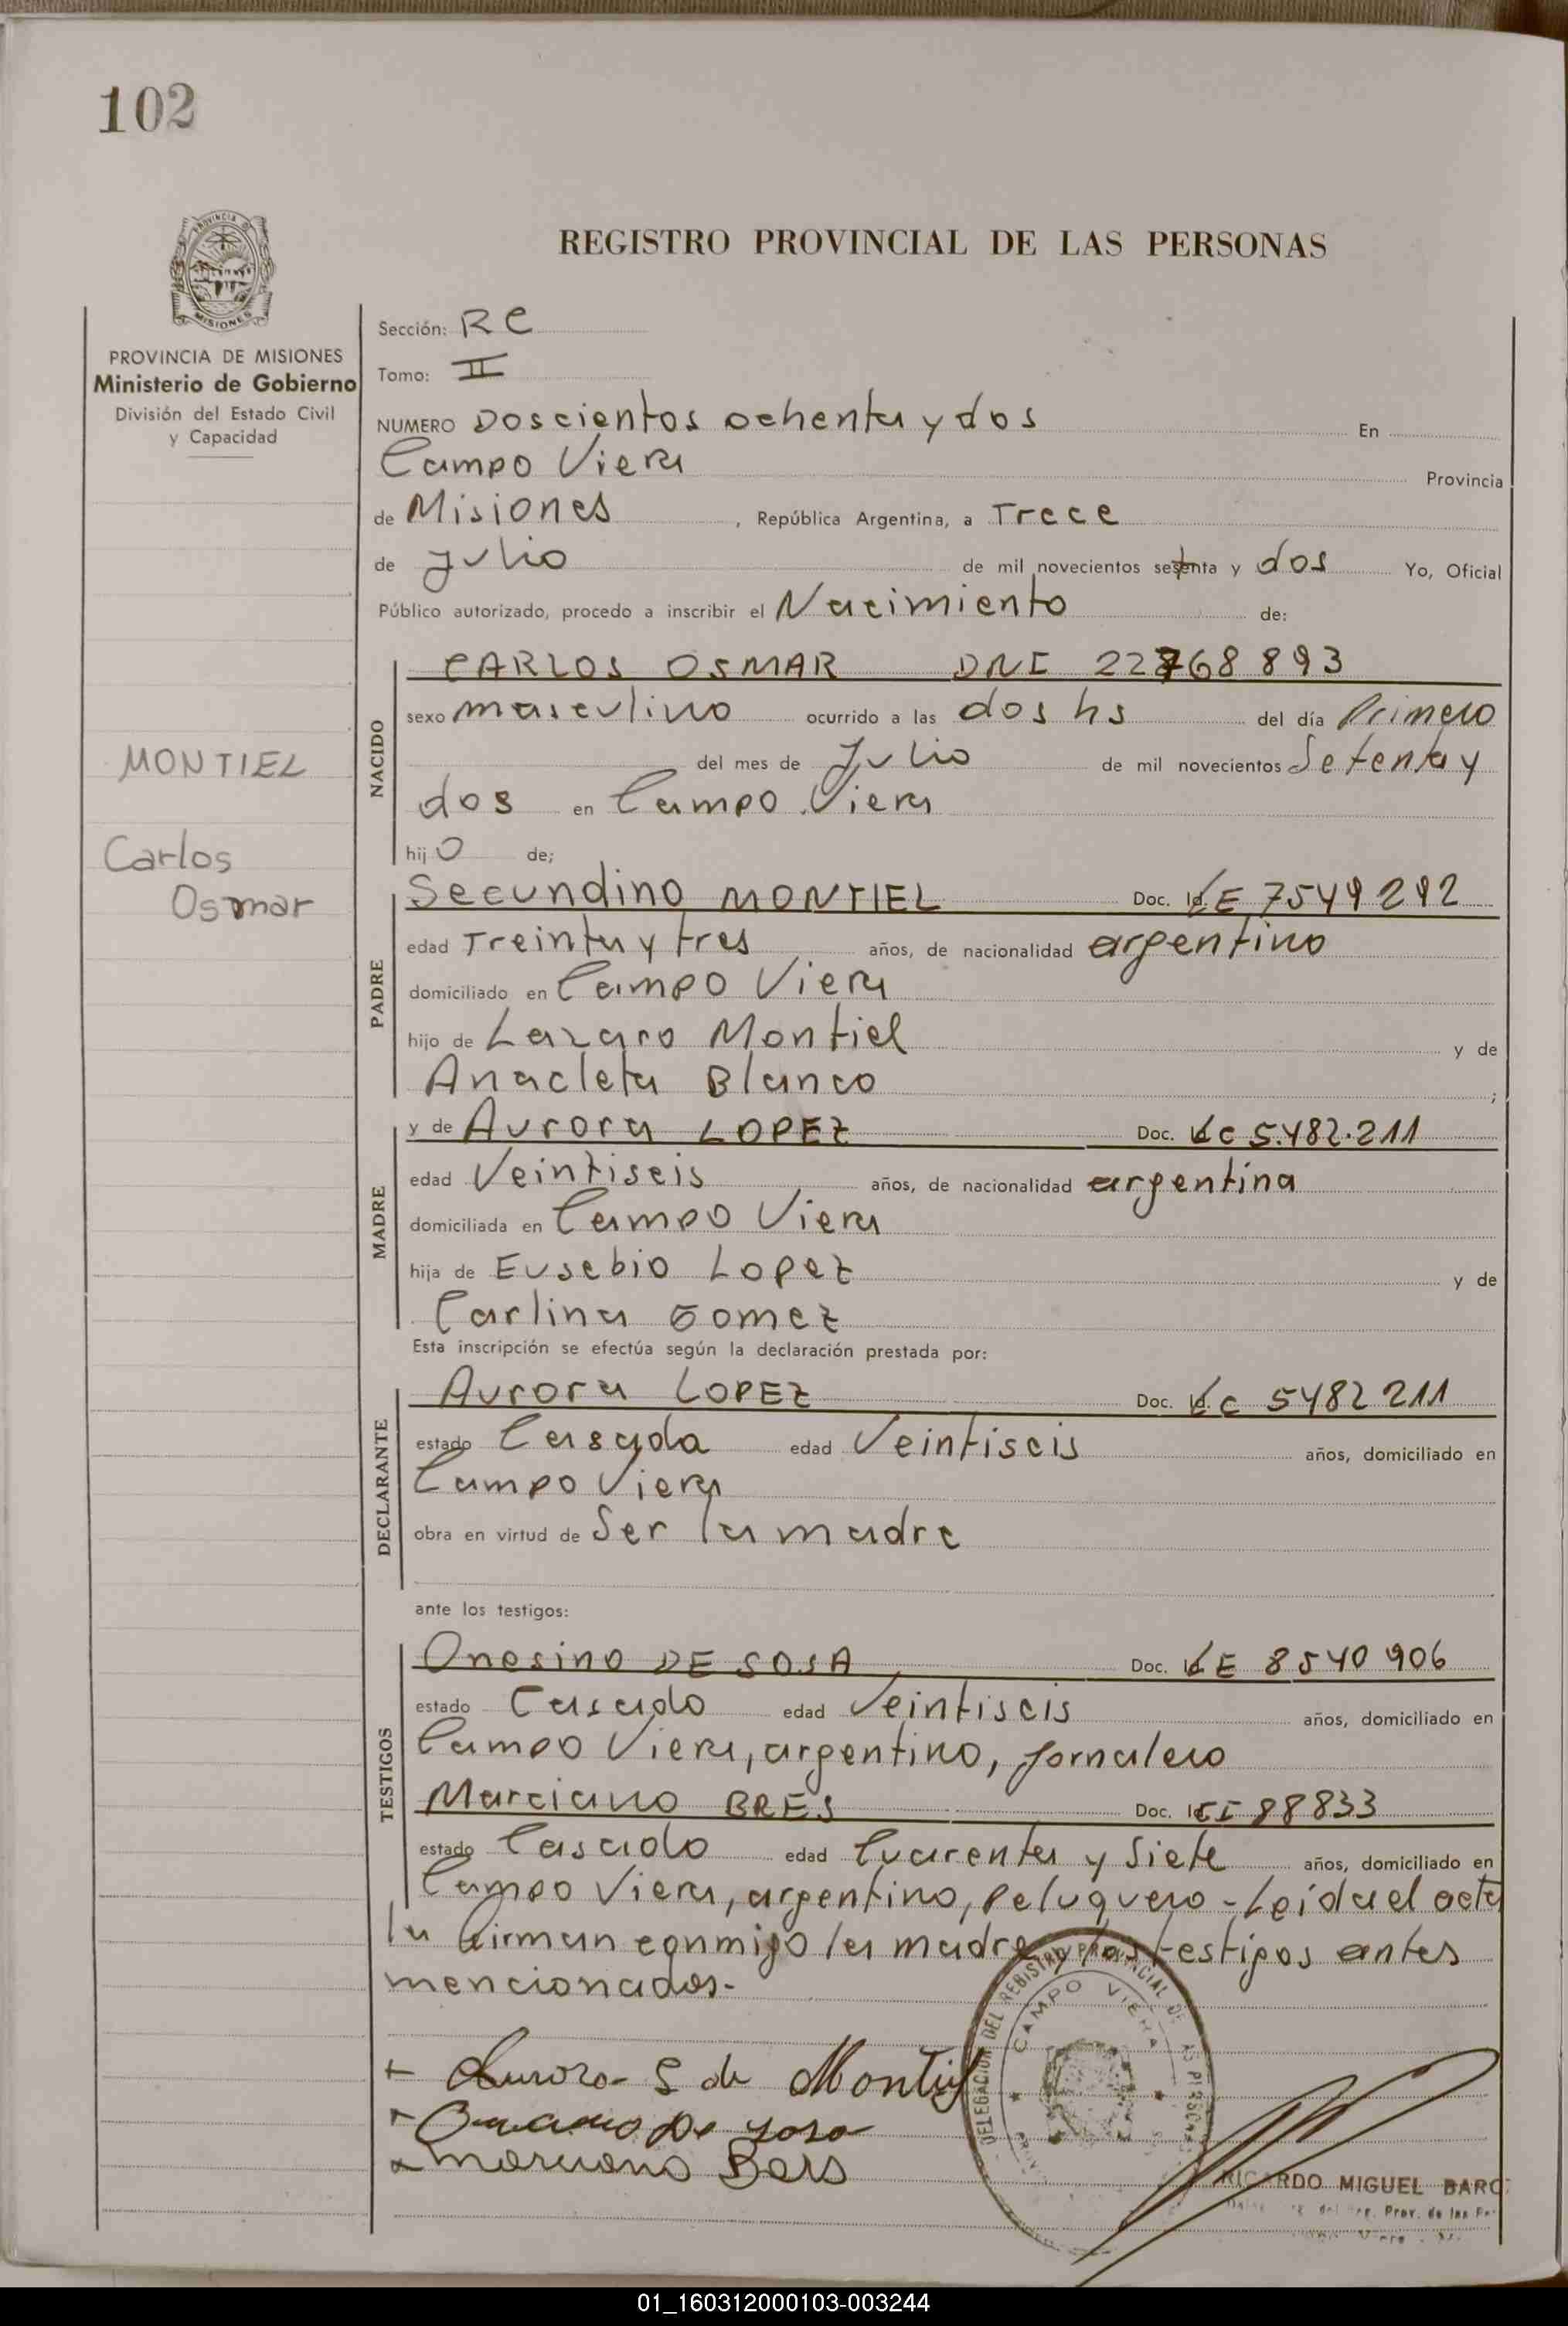 102
REGISTRO PROVINCIAL DE LAS PERSONAS
PROVINCIA DE MISIONES
Ministerio de Gobierno
División del Estado Civil
y Capacidad
MONTIEL
Carlos
Osmar
Sección: RC
Tomo: II
NUMERO Doscientos ochenta y dos En
Campo Viera Provincia
de Misiones, República Argentina, a Trece
de Julio de mil novecientos setenta y dos Yo, Oficial
Público autorizado, procedo a inscribir el Nacimiento de:
NACIDO
CARLOS OSMAR DNI 22768893
sexo masculino ocurrido a las dos hs del día Primero
del mes de Julio de mil novecientos Setenta y
dos en Campo Viera
hijo de;
PADRE
Secundino MONTIEL Doc. LE 7549292
edad Treinta y tres años, de nacionalidad argentino
domiciliado en Campo Viera
hijo de Lazaro Montiel y de
Anacleta Blanco ;
MADRE
y de Aurora LOPEZ Doc. LC 5.482.211
edad Veintiseis años, de nacionalidad argentina
domiciliada en Campo Viera
hija de Eusebio Lopez y de
Carlina Gomez
Esta inscripción se efectúa según la declaración prestada por:
DECLARANTE
Aurora LOPEZ Doc. LC 5482211
estado Casada edad Veintiseis años, domiciliado en
Campo Viera
obra en virtud de Ser la madre
ante los testigos:
TESTIGOS
Onesino DE SOSA Doc. LE 8540906
estado Casado edad Veintiseis años, domiciliado en
Campo Viera, argentino, jornalero
Marciano BRES Doc. CI 88833
estado Casado edad Cuarenta y Siete años, domiciliado en
Campo Viera, argentino, peluquero - Leída el acta
la firman conmigo la madre y los testigos antes
mencionados.-
Aurora S de Montiel
De Sosa
Marciano Bers
DELEGACION DEL REGISTRO PROVINCIAL DE LAS PERSONAS
CAMPO VIERA
RICARDO MIGUEL BARO
Prov. de las
01_160312000103-003244